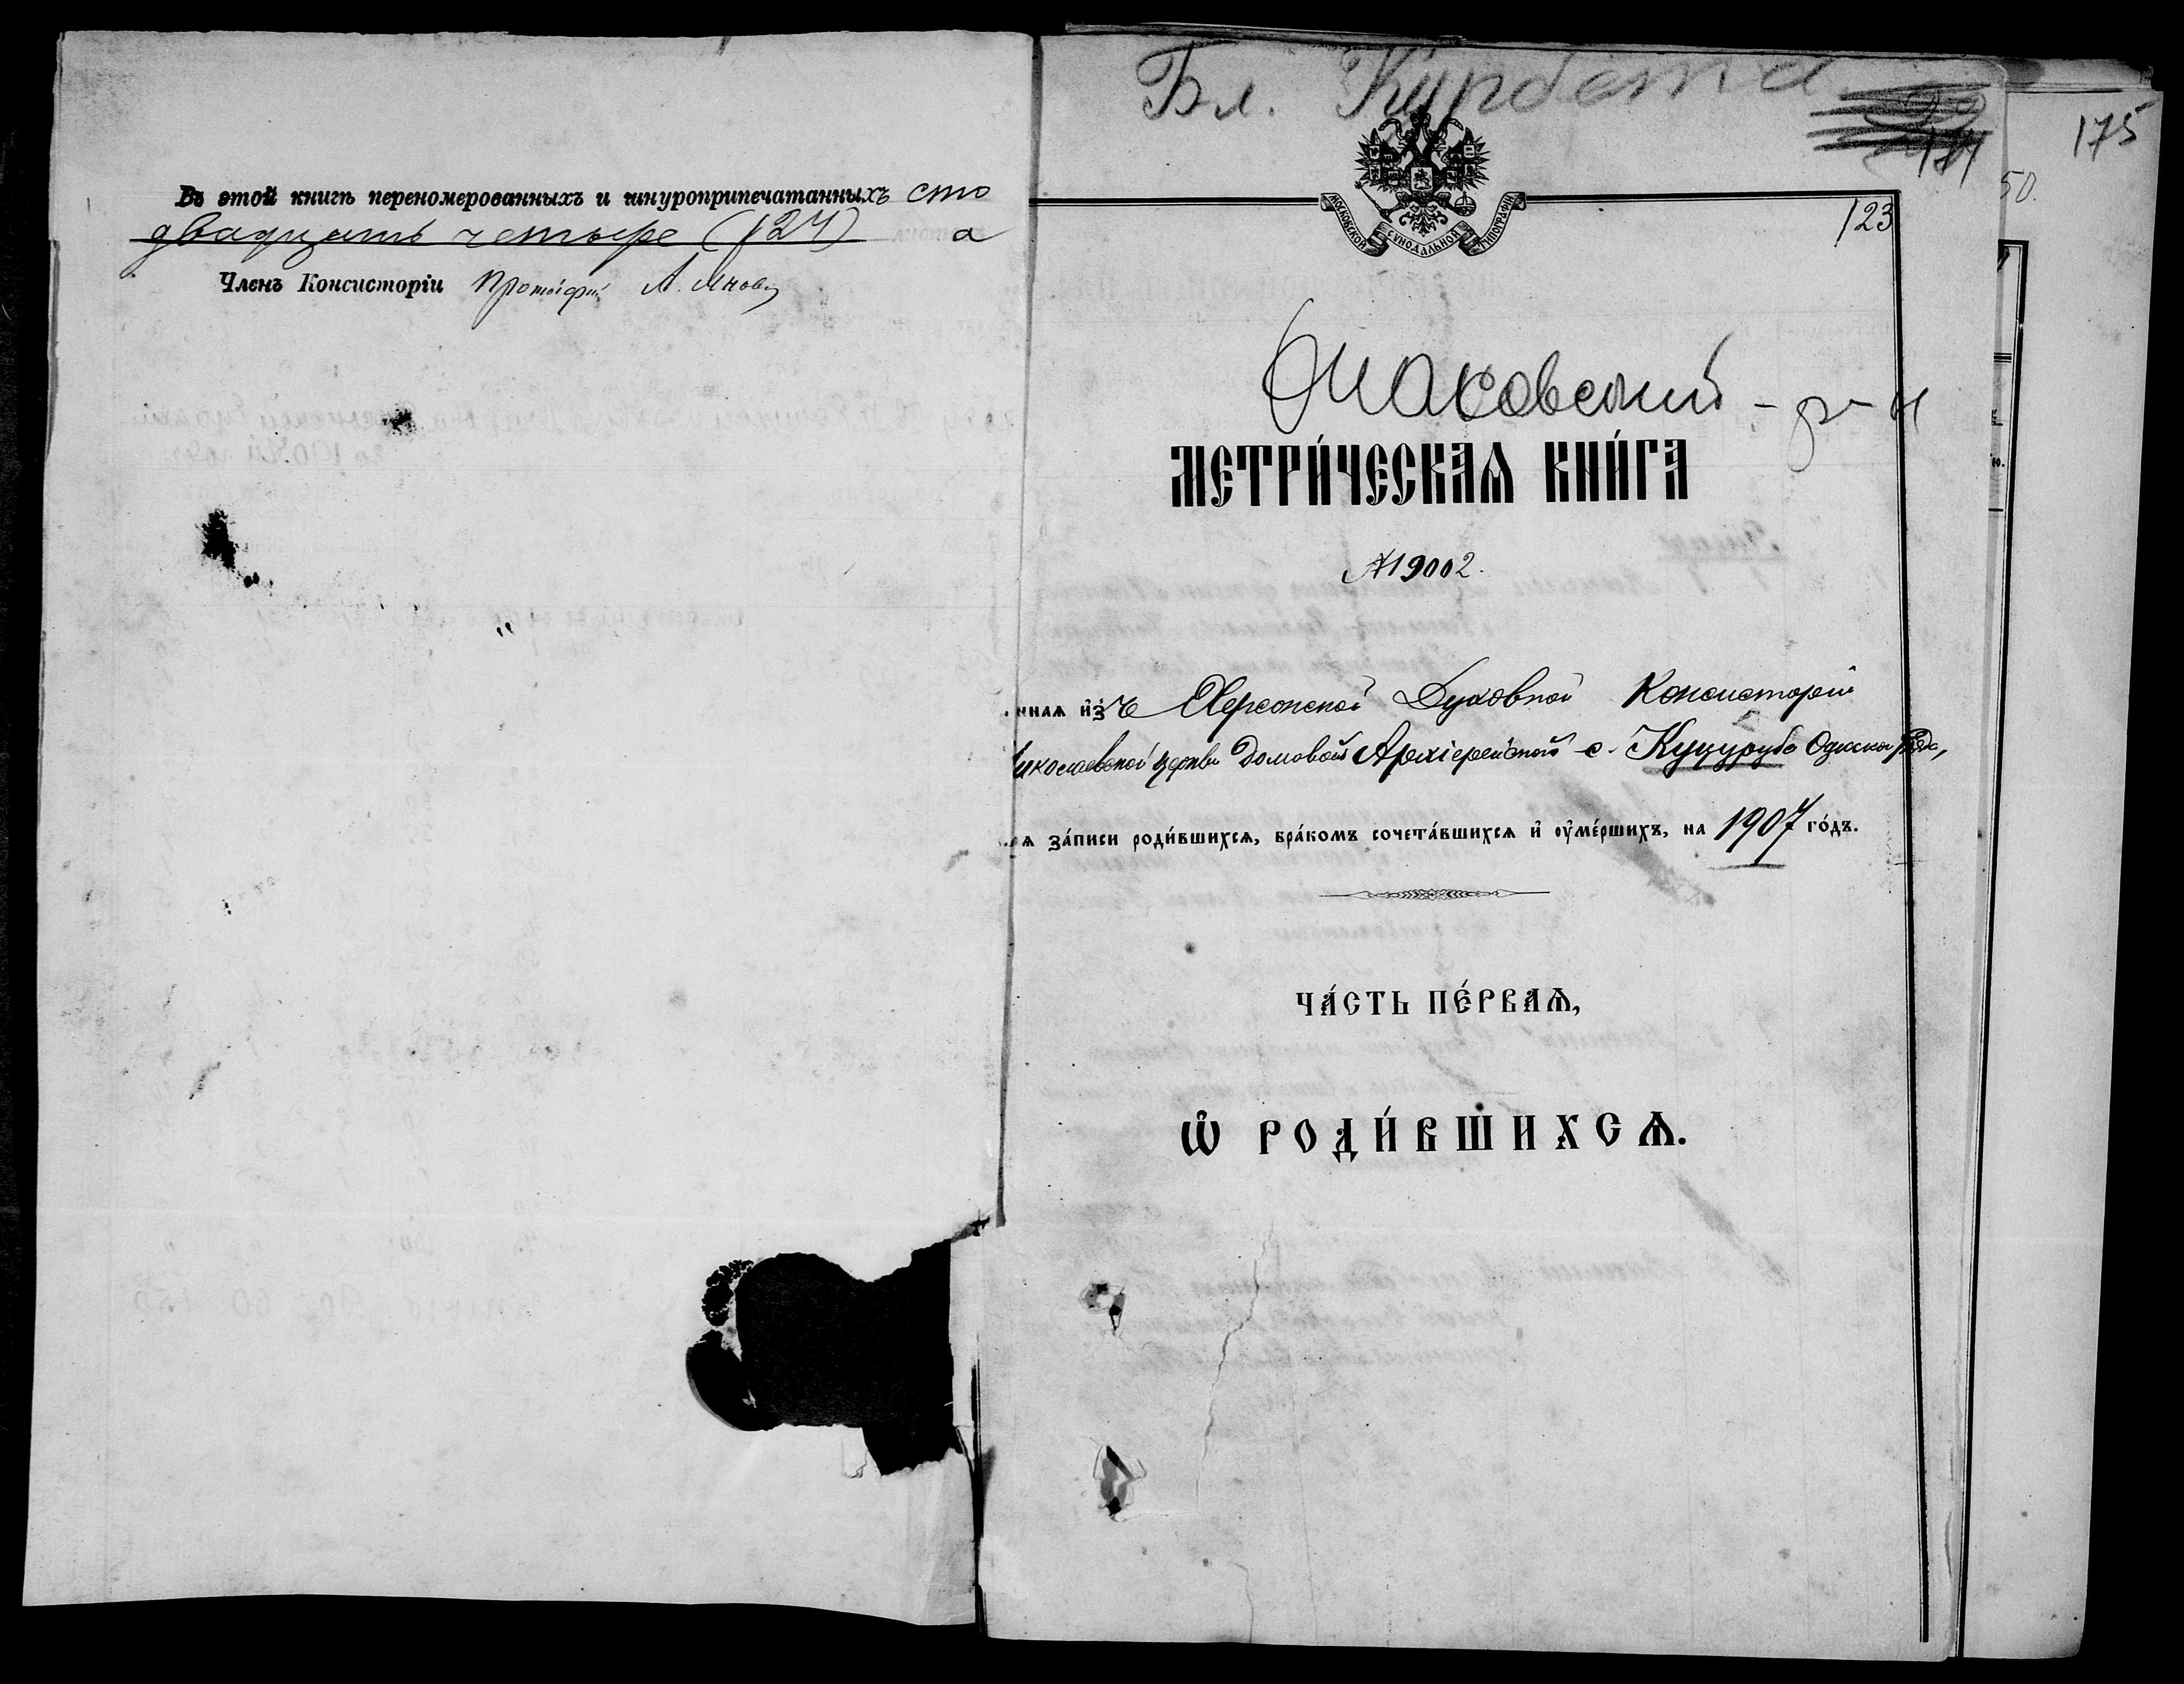 Въ этой книгѣ переномерованныхъ и шнуроприпечатанныхъ сто
двадцать четыре (124) а
Членъ Консисторіи Протоіерей А.
Бл. Курбета
174
175
50.
123
МОСКОВСКОЙ СѴНОДАЛЬНОЙ ТИПОГРАФІИ
Очаковский - р-н
МЕТРИ́ЧЕСКАѦ КНИ́ГА
№ 19002.
ннаѧ и҆зъ Херсонской Духовной Консисторіи
иколаевской церкви Домовой Архіерейской с. Куцуруба Одесск. уѣзда,
ѧ за́писи роди́вшихсѧ, бра́комъ сочета́вшихсѧ и҆ ѹ҆ме́ршихъ, на 1907 го́дъ.
ЧА́СТЬ ПЕ́РВАѦ,
Ѡ҆ РОДИ́ВШИХСѦ.